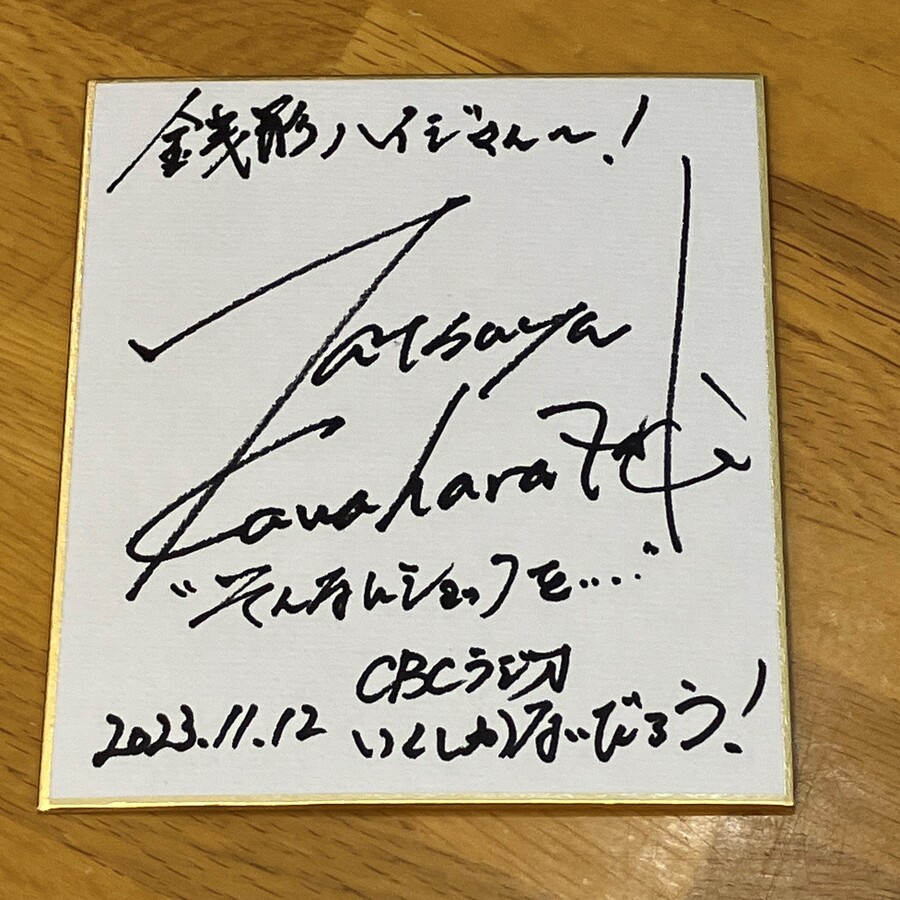 銭形ハイジさん〜!
Tatsuya
Kawaharazaki
"そんなにショックを...."
CBCラジオ
2023.11.12 いくしかないだろう!